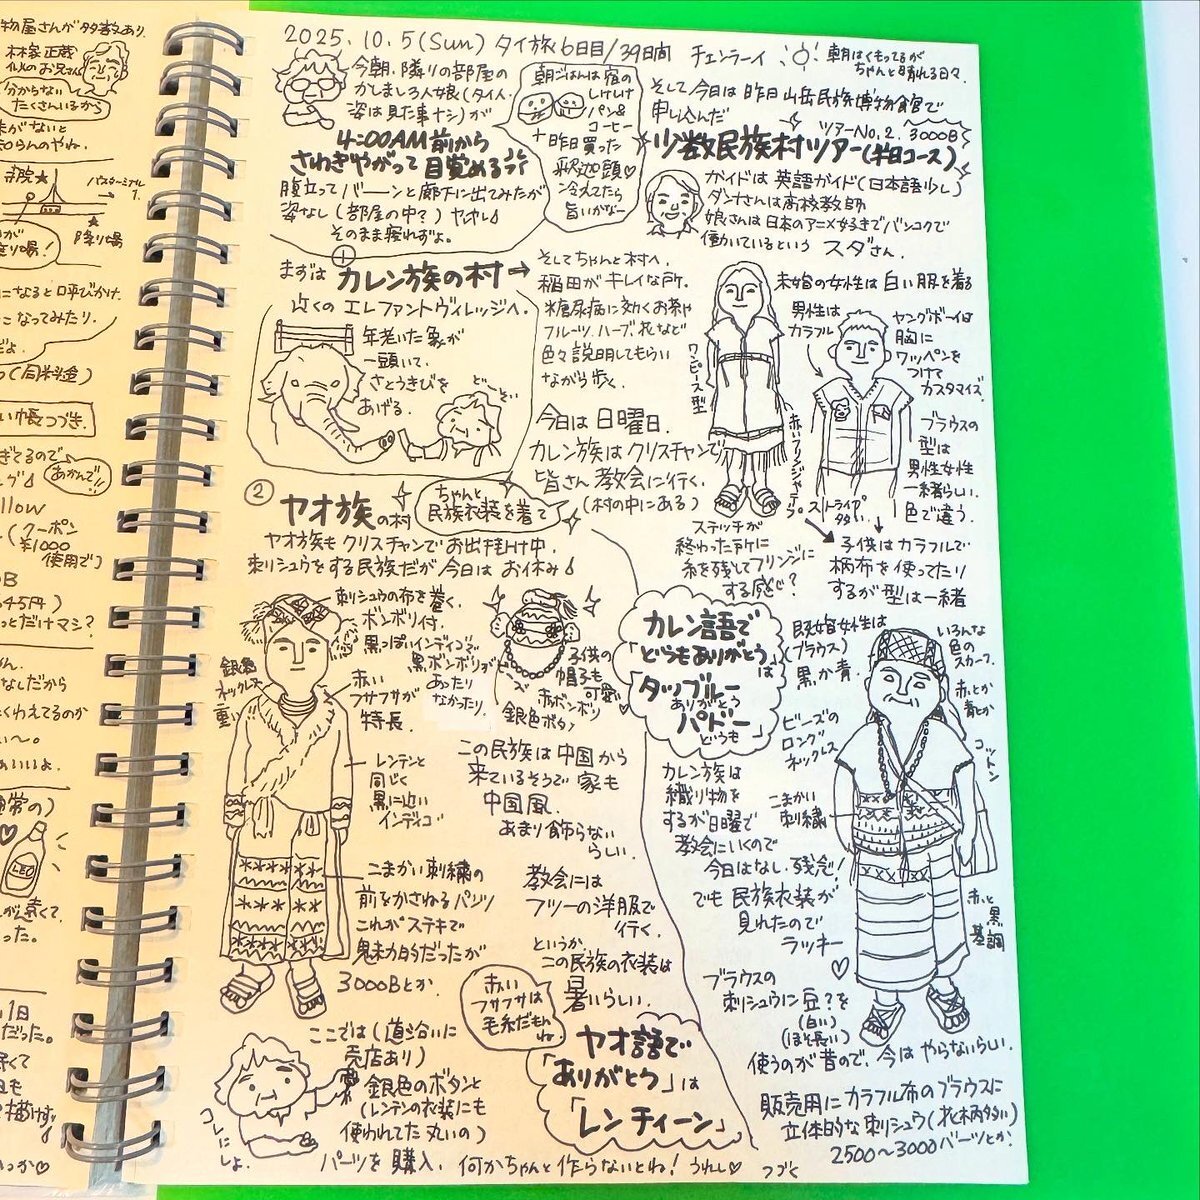 物屋さんが多数あり.
林家正蔵
似のお兄さん
分からない
たくさんいるから
がないと
知らんのやね.
寺院★
バスターミナル
1.
降り場
になると呼びかけ.
こなってみたり.
だよ.
(同料金)
い帳つづき.
ぎてるので
あかんで!!
llow
(クーポン
¥1000
使用で)
545円)
っとだけマシ?
なしだから
くわえてるのか
い〜.
LEO
が遠くて
った.
1日
だった.
くて
も
描けず
2025.10.5(Sun) タイ旅6日目/39日間 チェンラーイ
朝はくもってるが
ちゃんと晴れる日々.
今朝、隣りの部屋の
かしまし3人娘(タイ人.
姿は見た事ナシ)が
4:00AM前から
さわぎやがって目覚める
腹立ってバーーンと廊下に出てみたが
姿なし(部屋の中?)ヤレレ
そのまま寝れずよ.
朝ごはんは宿の
しけしけ
パン&
コーヒー
+昨日買った
釈迦頭♡
冷えてたら
旨いがなー
そして今日は昨日山岳民族博物館で
申し込んだ
ツアーNo.2. 3000B
少数民族村ツアー(半日コース)
ガイドは英語ガイド(日本語少し)
ダンナさんは高校教師
娘さんは日本のアニメ好きでバンコクで
働いているという スダさん.
①
まずは カレン族の村→
近くのエレファントヴィレッジへ.
年老いた象が
一頭いて.
さとうきびを
あげる.
どーぞー
そしてちゃんと村へ.
稲田がキレイな所.
糖尿病に効くお茶や
フルーツ、ハーブ、花など
色々説明してもらい
ながら歩く.
今日は日曜日.
カレン族はクリスチャンで
皆さん教会に行く.
(村の中にある)
未婚の女性は白い服を着る
ワンピース型
赤いフリンジやテープ
ステッチが
終わった所に
糸を残してフリンジに
する感じ?
男性は
カラフル
ヤングボーイは
胸に
ワッペンを
つけて
カスタマイズ.
ブラウスの
型は
男性女性
一緒らしい.
色で違う.
ストライプ
多い
子供はカラフルで
柄布を使ってたり
するが型は一緒
②
ヤオ族の村
ちゃんと
民族衣装を着て
ヤオ族もクリスチャンでお出掛け中.
刺シュウをする民族だが今日はお休み
刺シュウの布を巻く.
ボンボリ付.
黒っぽいインディゴで
黒ボンボリが
あったり
なかったり.
銀色
ネックレス
重い
赤い
フサフサが
特長.
レンテンと
同じく
黒に近い
インディゴ
子供の
帽子も
可愛い
赤ボンボリ
ビーズ
銀色ボタン
この民族は中国から
来ているそうで家も
中国風.
あまり飾らない
らしい.
こまかい刺繍の
前をかさねるパンツ
これがステキで
魅力的だったが
3000Bとか.
教会には
フツーの洋服で
行く.
というか、
この民族の衣装は
暑いらしい.
赤い
フサフサは
毛糸だもん
ね.
ここでは(道沿いに
売店あり)
銀色のボタンと
(レンテンの衣装にも
使われてた丸いの)
パーツを購入. 何かちゃんと作らないとね! うれし♡ つづく
コレに
しよ.
ヤオ語で
「ありがとう」は
「レンティーン」
カレン語で
「どうもありがとう」
は
「タッブルー
ありがとう
パドー」
どうも
カレン族は
織り物を
するが日曜で
教会にいくので
今日はなし.残念!
でも民族衣装が
見れたので
ラッキー
♡
既婚女性は
(ブラウス)
黒か青.
いろんな
色の
スカーフ.
赤とか
青とか
コットン
ビーズの
ロング
ネックレス
こまかい
刺繍
赤と
黒
基調
ブラウスの
刺シュウに豆?を
(白い)
(ほそ長い)
使うのが昔ので、今はやらないらしい.
販売用にカラフル布のブラウスに
立体的な刺シュウ(花柄多い)
2500〜3000バーツとか.